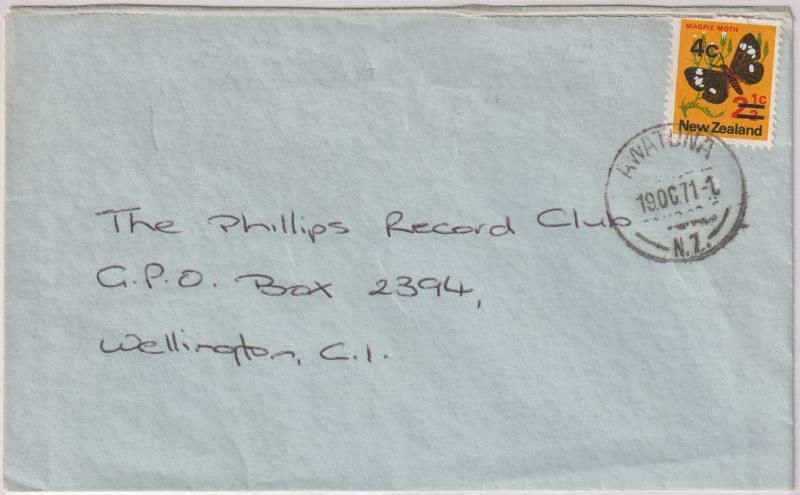 MAGPIE MOTH
4c
2½c
New Zealand
AWATUNA
19 OC 71-1
N.Z.
The Phillips Record Club
G.P.O. Box 2394,
Wellington, C.1.